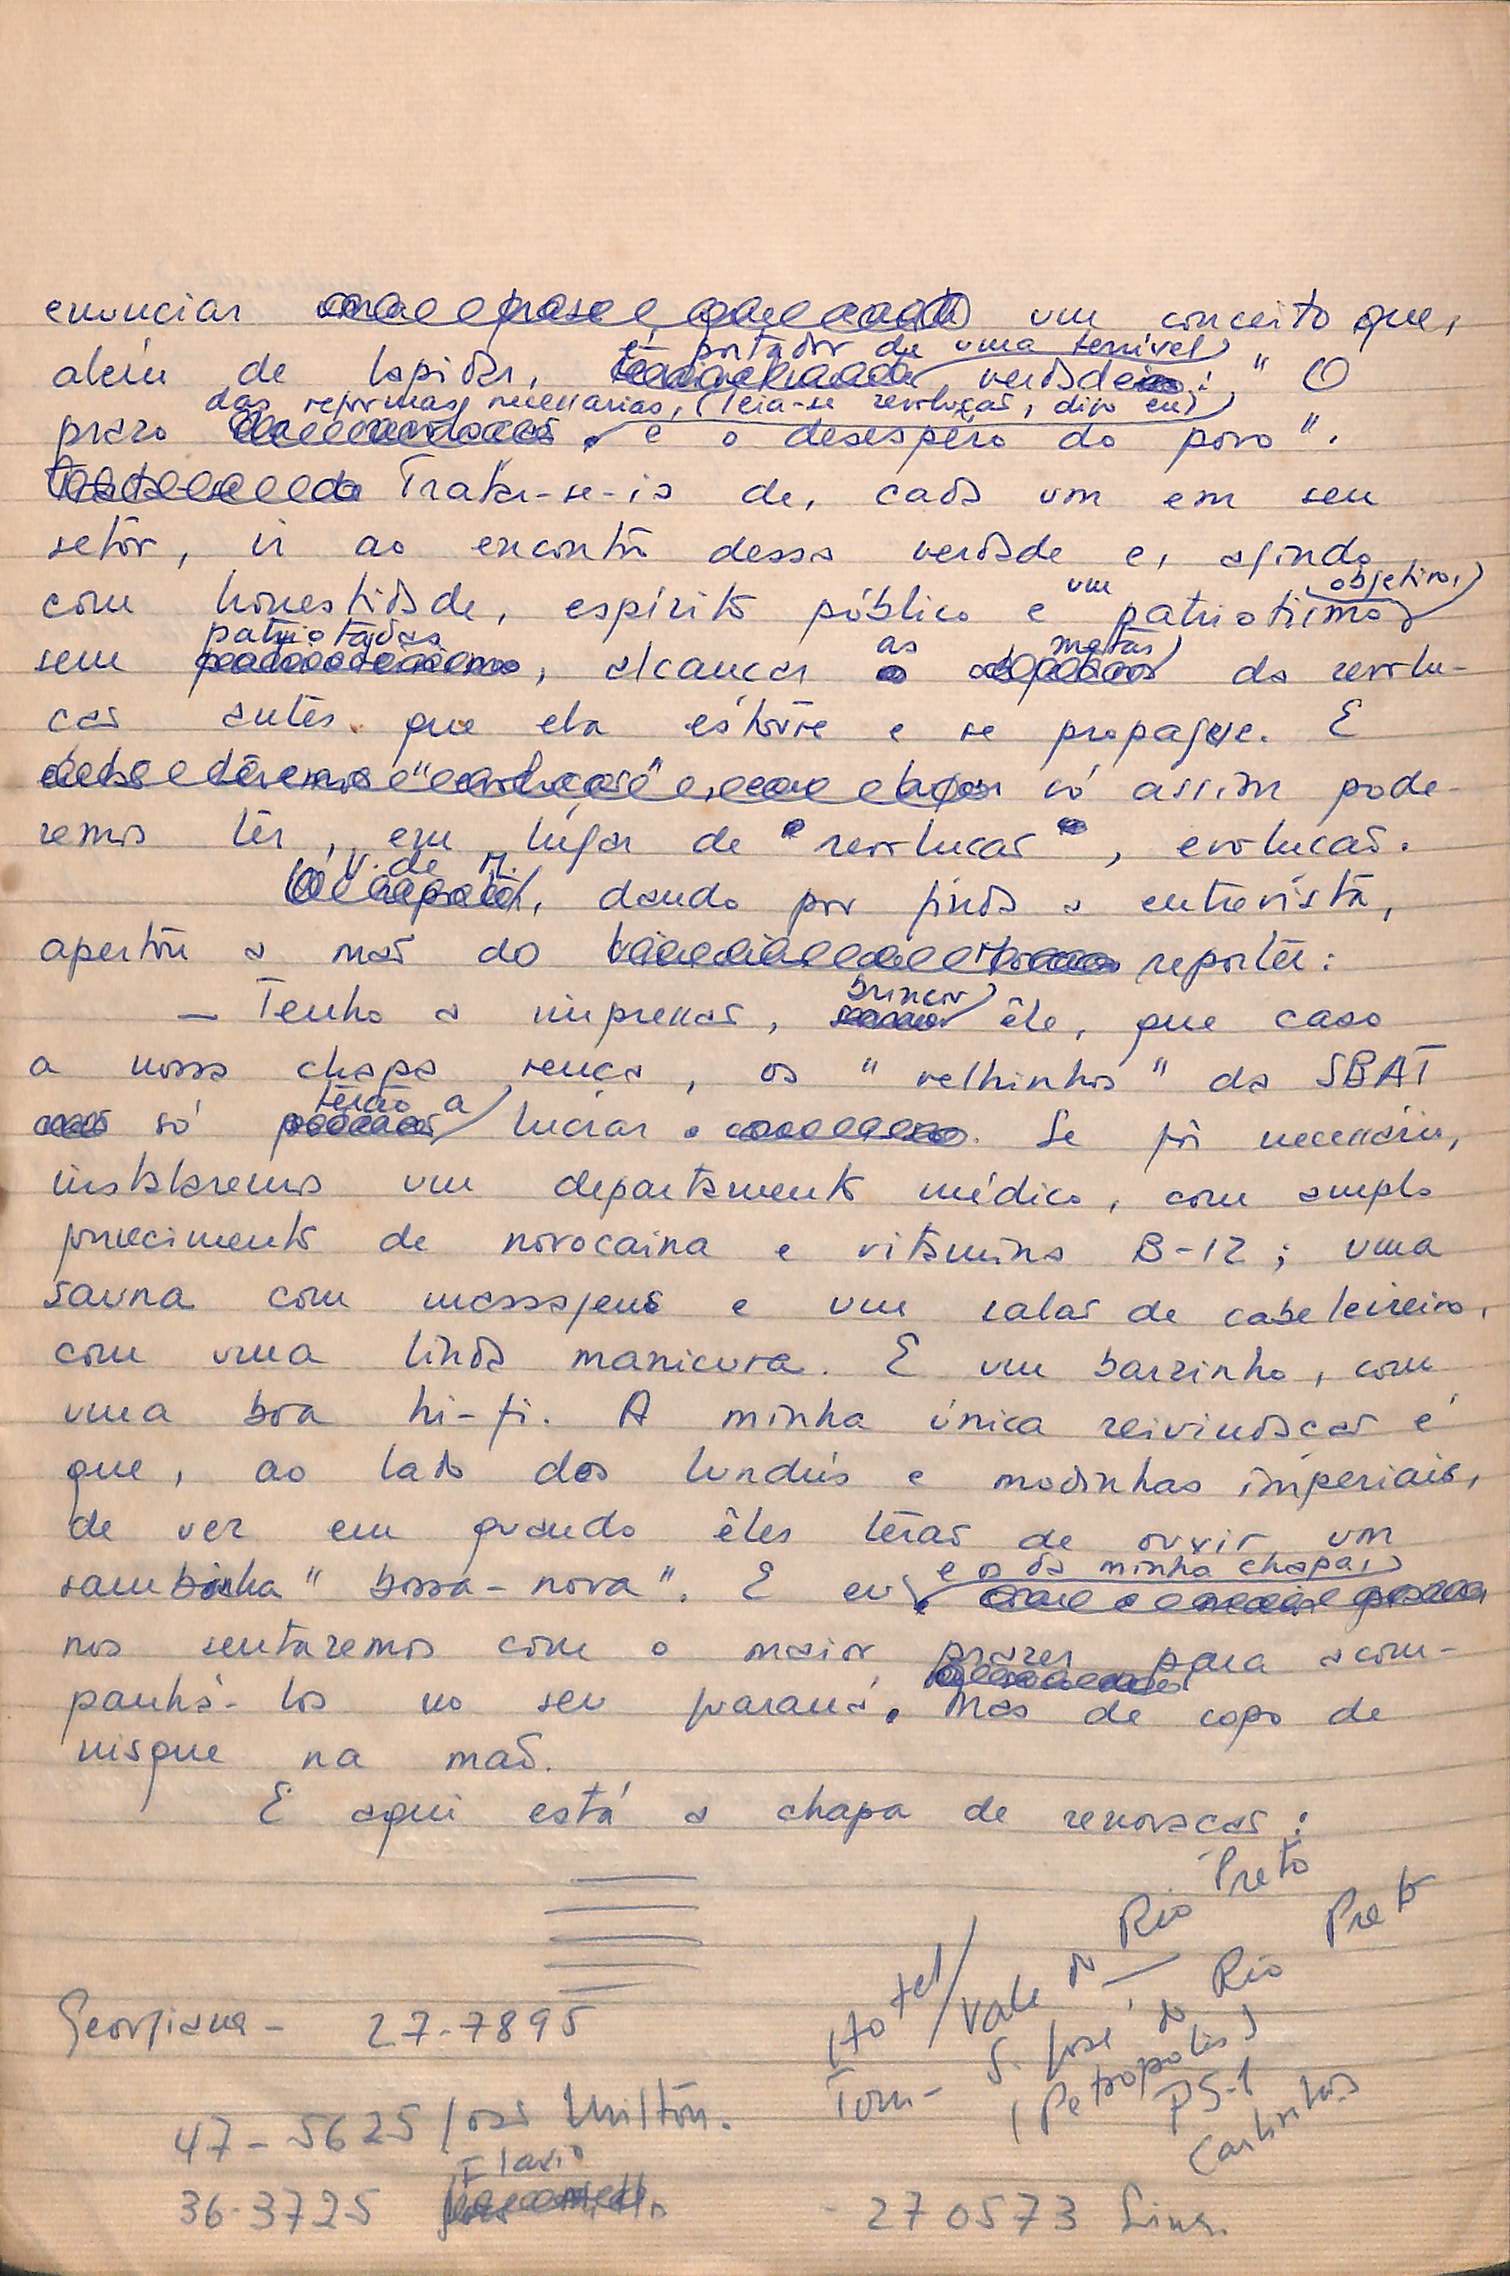 enunciar um conceito que,
é portador de uma terrível
além de lapidar, verdade: " O
das reformas necessárias, (leia-se revolução, digo eu)
prazo é o desespêro do povo".
Tratar-se-ia de, cada um em seu
setôr, ir ao encontro dessa verdade e, agindo
um objetivo,
com honestidade, espírito público e patriotismo
patriotadas as metas
sem , alcançar da revolu-
ção antes que ela estoure e se propague. E
só assim pode-
remos ter, em lugar de revolução , evolução.
V. de M.
, dando por finda a entrevista,
apertou a mão do reporter:
brincou
— Tenho a impressão, êle, que caso
a nossa chapa vença, os "velhinhos" da SBAT
terão a
só lucrar. Se fôr necessário,
instalaremos um departamento médico, com amplo
fornecimento de novocaina e vitamina B-12; uma
sauna com massagens e um salão de cabeleireiro,
com uma linda manicura. E um barzinho, com
uma boa hi-fi. A minha única reivindicação é
que, ao lado dos lundús e modinhas imperiais,
de vez em quando êles terão de ouvir um
sambinha "bossa-nova". E eu
e o da minha chapa,
nos sentaremos com o maior prazer para acom-
panhá-los no seu guaraná. Mas de copo de
uisque na mão.
E aqui está a chapa de renovação:
Georgiana - 27-7895
Hotel / Vale do Rio Preto
Tom - S. José do Rio Preto
(Petropolis)
PS-1
Carlinhos
47-5625 João Milton.
Flavio
36-3725
- 270573 Lina.